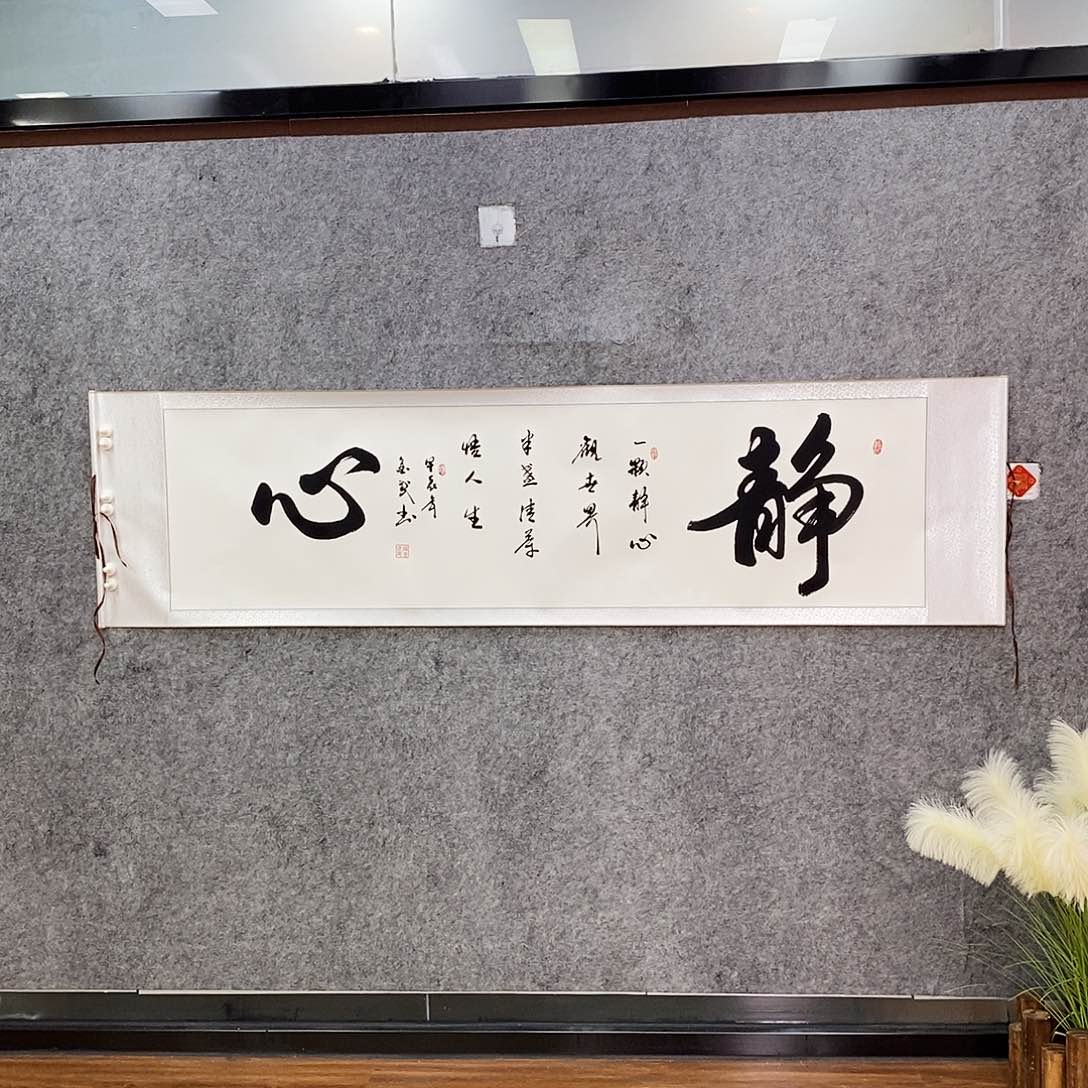 静
一颗静心
觀世界
半盏清茶
悟人生
甲辰年
心